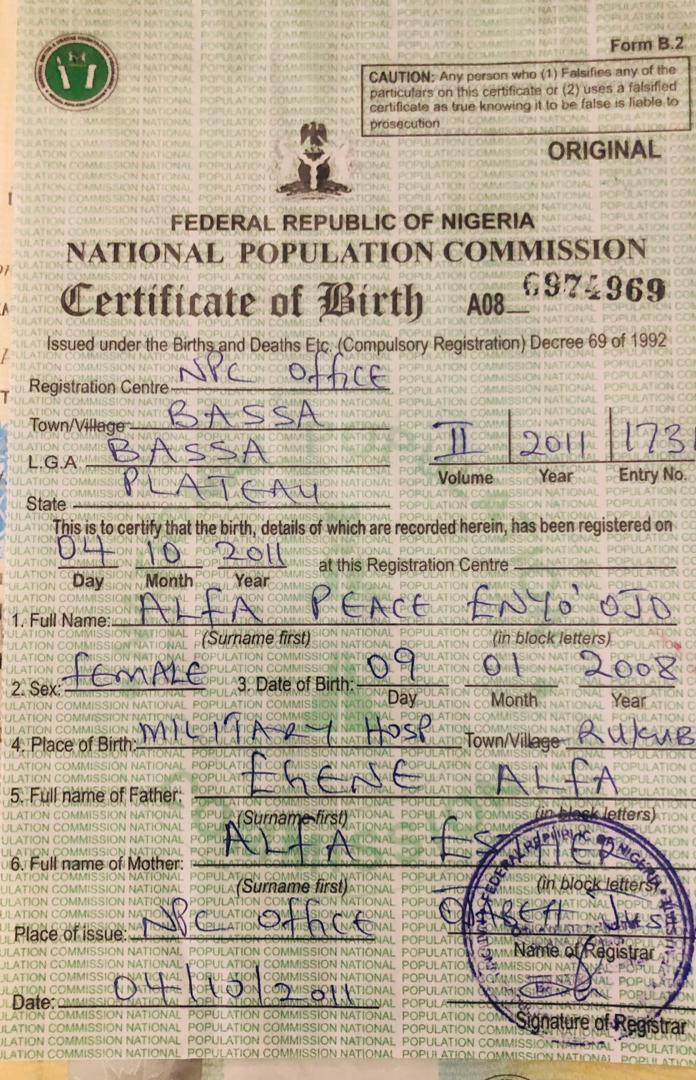 Form B.2
CAUTION: Any person who (1) Falsifies any of the
particulars on this certificate or (2) uses a falsified
certificate as true knowing it to be false is liable to
prosecution
ORIGINAL
FEDERAL REPUBLIC OF NIGERIA
NATIONAL POPULATION COMMISSION
Certificate of Birth A08
Issued under the Births and Deaths Etc. (Compulsory Registration) Decree 69 of 1992
Registration Centre NPC Office
Town/Village BASSA
L.G.A BASSA
II 2011 1731
Volume Year Entry No.
State PLATEAU
This is to certify that the birth, details of which are recorded herein, has been registered on
04 10 2011 at this Registration Centre
Day Month Year
1. Full Name: ALFA PEACE ENYO'OJO
(Surname first) (in block letters)
2. Sex: FEMALE 3. Date of Birth: 09 01 2008
Day Month Year
4. Place of Birth: MILITARY HOSP Town/Village RUKUB
5. Full name of Father: EHENE ALFA
(Surname first) (in block letters)
6. Full name of Mother: ALFA ESTHER
(Surname first) (in block letters)
Place of issue: NPC Office
Name of Registrar
Date: 04/10/2011
Signature of Registrar
FEDERAL REPUBLIC OF NIGERIA